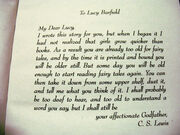 To Lucy Barfield
My Dear Lucy,
I wrote this story for you, but when I began it I
had not realized that girls grow quicker than
books. As a result you are already too old for fairy
tales, and by the time it is printed and bound you
will be older still. But some day you will be old
enough to start reading fairy tales again. You can
then take it down from some upper shelf, dust it,
and tell me what you think of it. I shall probably
be too deaf to hear, and too old to understand a
word you say, but I shall still be
your affectionate Godfather,
C. S. Lewis